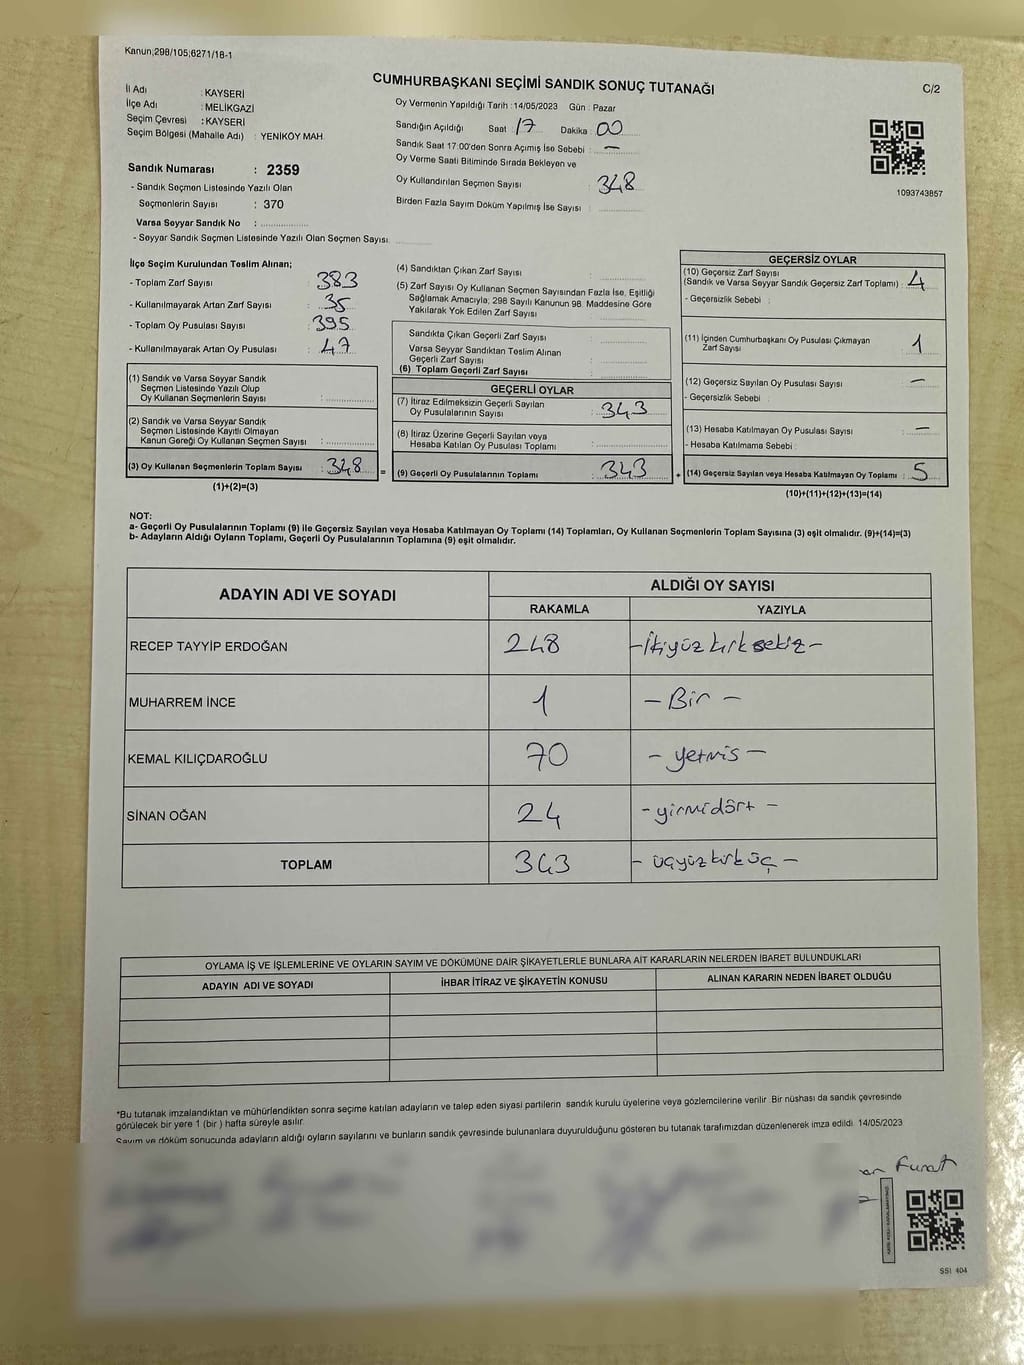 Kanun;298/105;6271/18-1
CUMHURBAŞKANI SEÇİMİ SANDIK SONUÇ TUTANAĞI
C/2
İl Adı : KAYSERİ
İlçe Adı : MELİKGAZİ
Seçim Çevresi : KAYSERİ
Seçim Bölgesi (Mahalle Adı) : YENİKÖY MAH.
Sandık Numarası : 2359
- Sandık Seçmen Listesinde Yazılı Olan
Seçmenlerin Sayısı : 370
Varsa Seyyar Sandık No :
- Seyyar Sandık Seçmen Listesinde Yazılı Olan Seçmen Sayısı
Oy Vermenin Yapıldığı Tarih :14/05/2023 Gün : Pazar
Sandığın Açıldığı Saat 17 Dakika 00
Sandık Saat 17:00'den Sonra Açımış İse Sebebi : —
Oy Verme Saati Bitiminde Sırada Bekleyen ve
Oy Kullandırılan Seçmen Sayısı : 348
Birden Fazla Sayım Döküm Yapılmış İse Sayısı :
1093743857
İlçe Seçim Kurulundan Teslim Alınan;
- Toplam Zarf Sayısı : 383
- Kullanılmayarak Artan Zarf Sayısı : 35
- Toplam Oy Pusulası Sayısı : 395
- Kullanılmayarak Artan Oy Pusulası : 47
(1) Sandık ve Varsa Seyyar Sandık
Seçmen Listesinde Yazılı Olup
Oy Kullanan Seçmenlerin Sayısı :
(2) Sandık ve Varsa Seyyar Sandık
Seçmen Listesinde Kayıtlı Olmayan
Kanun Gereği Oy Kullanan Seçmen Sayısı :
(3) Oy Kullanan Seçmenlerin Toplam Sayısı : 348
(1)+(2)=(3)
=
(4) Sandıktan Çıkan Zarf Sayısı :
(5) Zarf Sayısı Oy Kullanan Seçmen Sayısından Fazla İse, Eşitliği
Sağlamak Amacıyla, 298 Sayılı Kanunun 98. Maddesine Göre
Yakılarak Yok Edilen Zarf Sayısı :
Sandıkta Çıkan Geçerli Zarf Sayısı :
Varsa Seyyar Sandıktan Teslim Alınan
Geçerli Zarf Sayısı :
(6) Toplam Geçerli Zarf Sayısı :
GEÇERLİ OYLAR
(7) İtiraz Edilmeksizin Geçerli Sayılan
Oy Pusulalarının Sayısı : 343
(8) İtiraz Üzerine Geçerli Sayılan veya
Hesaba Katılan Oy Pusulası Toplamı :
(9) Geçerli Oy Pusulalarının Toplamı : 343
+
GEÇERSİZ OYLAR
(10) Geçersiz Zarf Sayısı
(Sandık ve Varsa Seyyar Sandık Geçersiz Zarf Toplamı) : 4
- Geçersizlik Sebebi :
(11) İçinden Cumhurbaşkanı Oy Pusulası Çıkmayan
Zarf Sayısı : 1
(12) Geçersiz Sayılan Oy Pusulası Sayısı : —
- Geçersizlik Sebebi :
(13) Hesaba Katılmayan Oy Pusulası Sayısı : —
- Hesaba Katılmama Sebebi :
(14) Geçersiz Sayılan veya Hesaba Katılmayan Oy Toplamı : 5
(10)+(11)+(12)+(13)=(14)
NOT:
a- Geçerli Oy Pusulalarının Toplamı (9) ile Geçersiz Sayılan veya Hesaba Katılmayan Oy Toplamı (14) Toplamları, Oy Kullanan Seçmenlerin Toplam Sayısına (3) eşit olmalıdır. (9)+(14)=(3)
b- Adayların Aldığı Oyların Toplamı, Geçerli Oy Pusulalarının Toplamına (9) eşit olmalıdır.
ADAYIN ADI VE SOYADI
ALDIĞI OY SAYISI
RAKAMLA YAZIYLA
RECEP TAYYİP ERDOĞAN 248 -İkiyüz kırk sekiz-
MUHARREM İNCE 1 - Bir -
KEMAL KILIÇDAROĞLU 70 - yetmis -
SİNAN OĞAN 24 - yirmidört -
TOPLAM 343 - üçyüz kırk üç -
OYLAMA İŞ VE İŞLEMLERİNE VE OYLARIN SAYIM VE DÖKÜMÜNE DAİR ŞİKAYETLERLE BUNLARA AİT KARARLARIN NELERDEN İBARET BULUNDUKLARI
ADAYIN ADI VE SOYADI İHBAR İTİRAZ VE ŞİKAYETİN KONUSU ALINAN KARARIN NEDEN İBARET OLDUĞU
*Bu tutanak imzalandıktan ve mühürlendikten sonra seçime katılan adayların ve talep eden siyasi partilerin sandık kurulu üyelerine veya gözlemcilerine verilir. Bir nüshası da sandık çevresinde
görülecek bir yere 1 (bir) hafta süreyle asılır.
Sayım ve döküm sonucunda adayların aldığı oyların sayılarını ve bunların sandık çevresinde bulunanlara duyurulduğunu gösteren bu tutanak tarafımızdan düzenlenerek imza edildi. 14/05/2023
Furat
SSİ 404